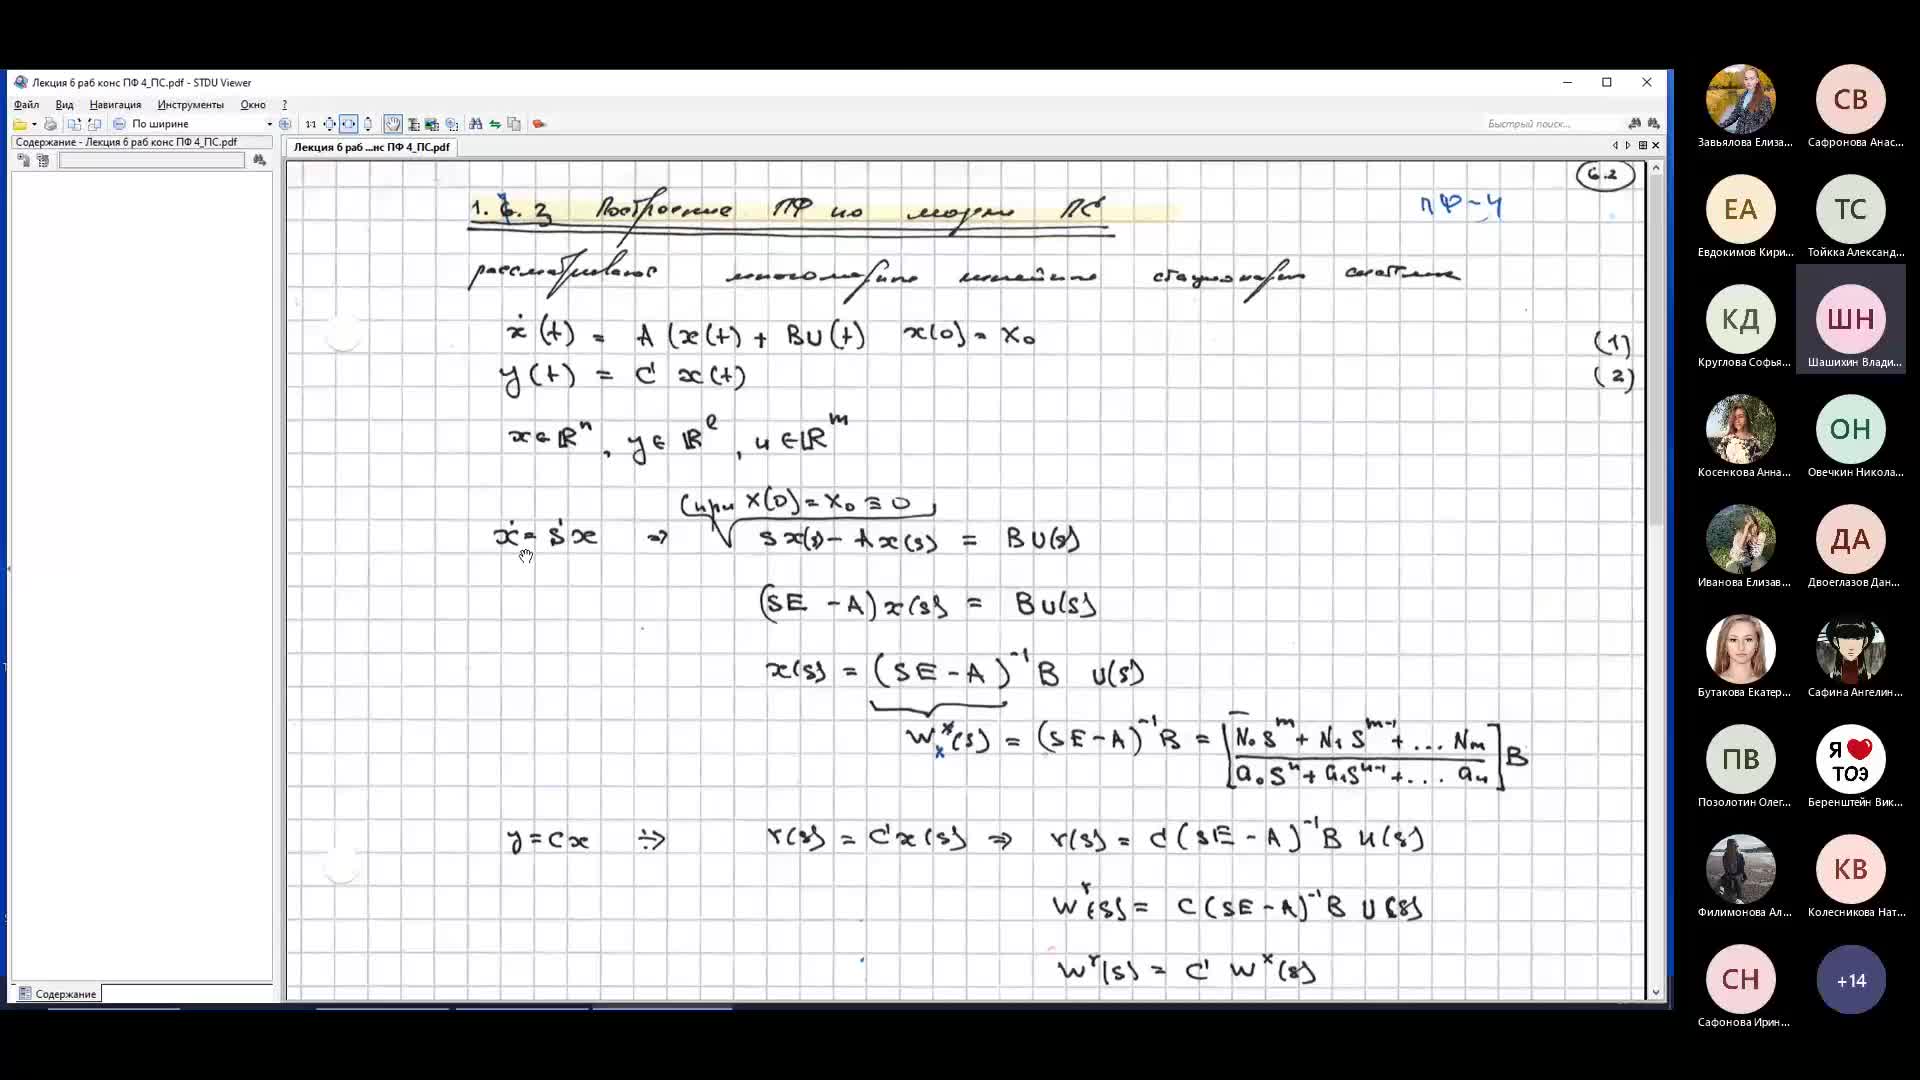 Лекция 6 раб конс ПФ 4_ПС.pdf - STDU Viewer
Файл Вид Навигация Инструменты Окно ?
По ширине
Быстрый поиск...
Содержание - Лекция 6 раб конс ПФ 4_ПС.pdf
Лекция 6 раб ...нс ПФ 4_ПС.pdf
6.2
1.6.2 Построение ПФ по модели ПС
ПФ-4
рассматривается многомерная линейная стационарная система
ẋ(t) = A(x(t) + BU(t) x(0) = x₀ (1)
y(t) = C x(t) (2)
x∈ℝⁿ, y∈ℝˡ, u∈ℝᵐ
(при x(0) = x₀ ≡ 0
ẋ = sx ⇒ sx(s) - Ax(s) = BU(s)
(sE - A)x(s) = BU(s)
x(s) = (sE - A)⁻¹B U(s)
Wₓˣ(s) = (sE - A)⁻¹B = [N₀sᵐ + N₁sᵐ⁻¹ + ... Nₘ / a₀sⁿ + a₁sⁿ⁻¹ + ... aₙ] B
y = cx ⇒ r(s) = Cx(s) ⇒ r(s) = C(sE - A)⁻¹B U(s)
Wʳ(s) = C(sE - A)⁻¹B U(s)
Wʳ(s) = C Wˣ(s)
Содержание
Завьялова Елиза...
СВ
Сафронова Анас...
ЕА
Евдокимов Кири...
ТС
Тойкка Александ...
КД
Круглова Софья...
ШН
Шашихин Влади...
Косенкова Анна...
ОН
Овечкин Никола...
Иванова Елизав...
ДА
Двоеглазов Дан...
Бутакова Екатер...
Сафина Ангелин...
ПВ
Позолотин Олег...
Я ❤ ТОЭ
Беренштейн Вик...
Филимонова Ал...
КВ
Колесникова Нат...
СН
Сафонова Ирин...
+14